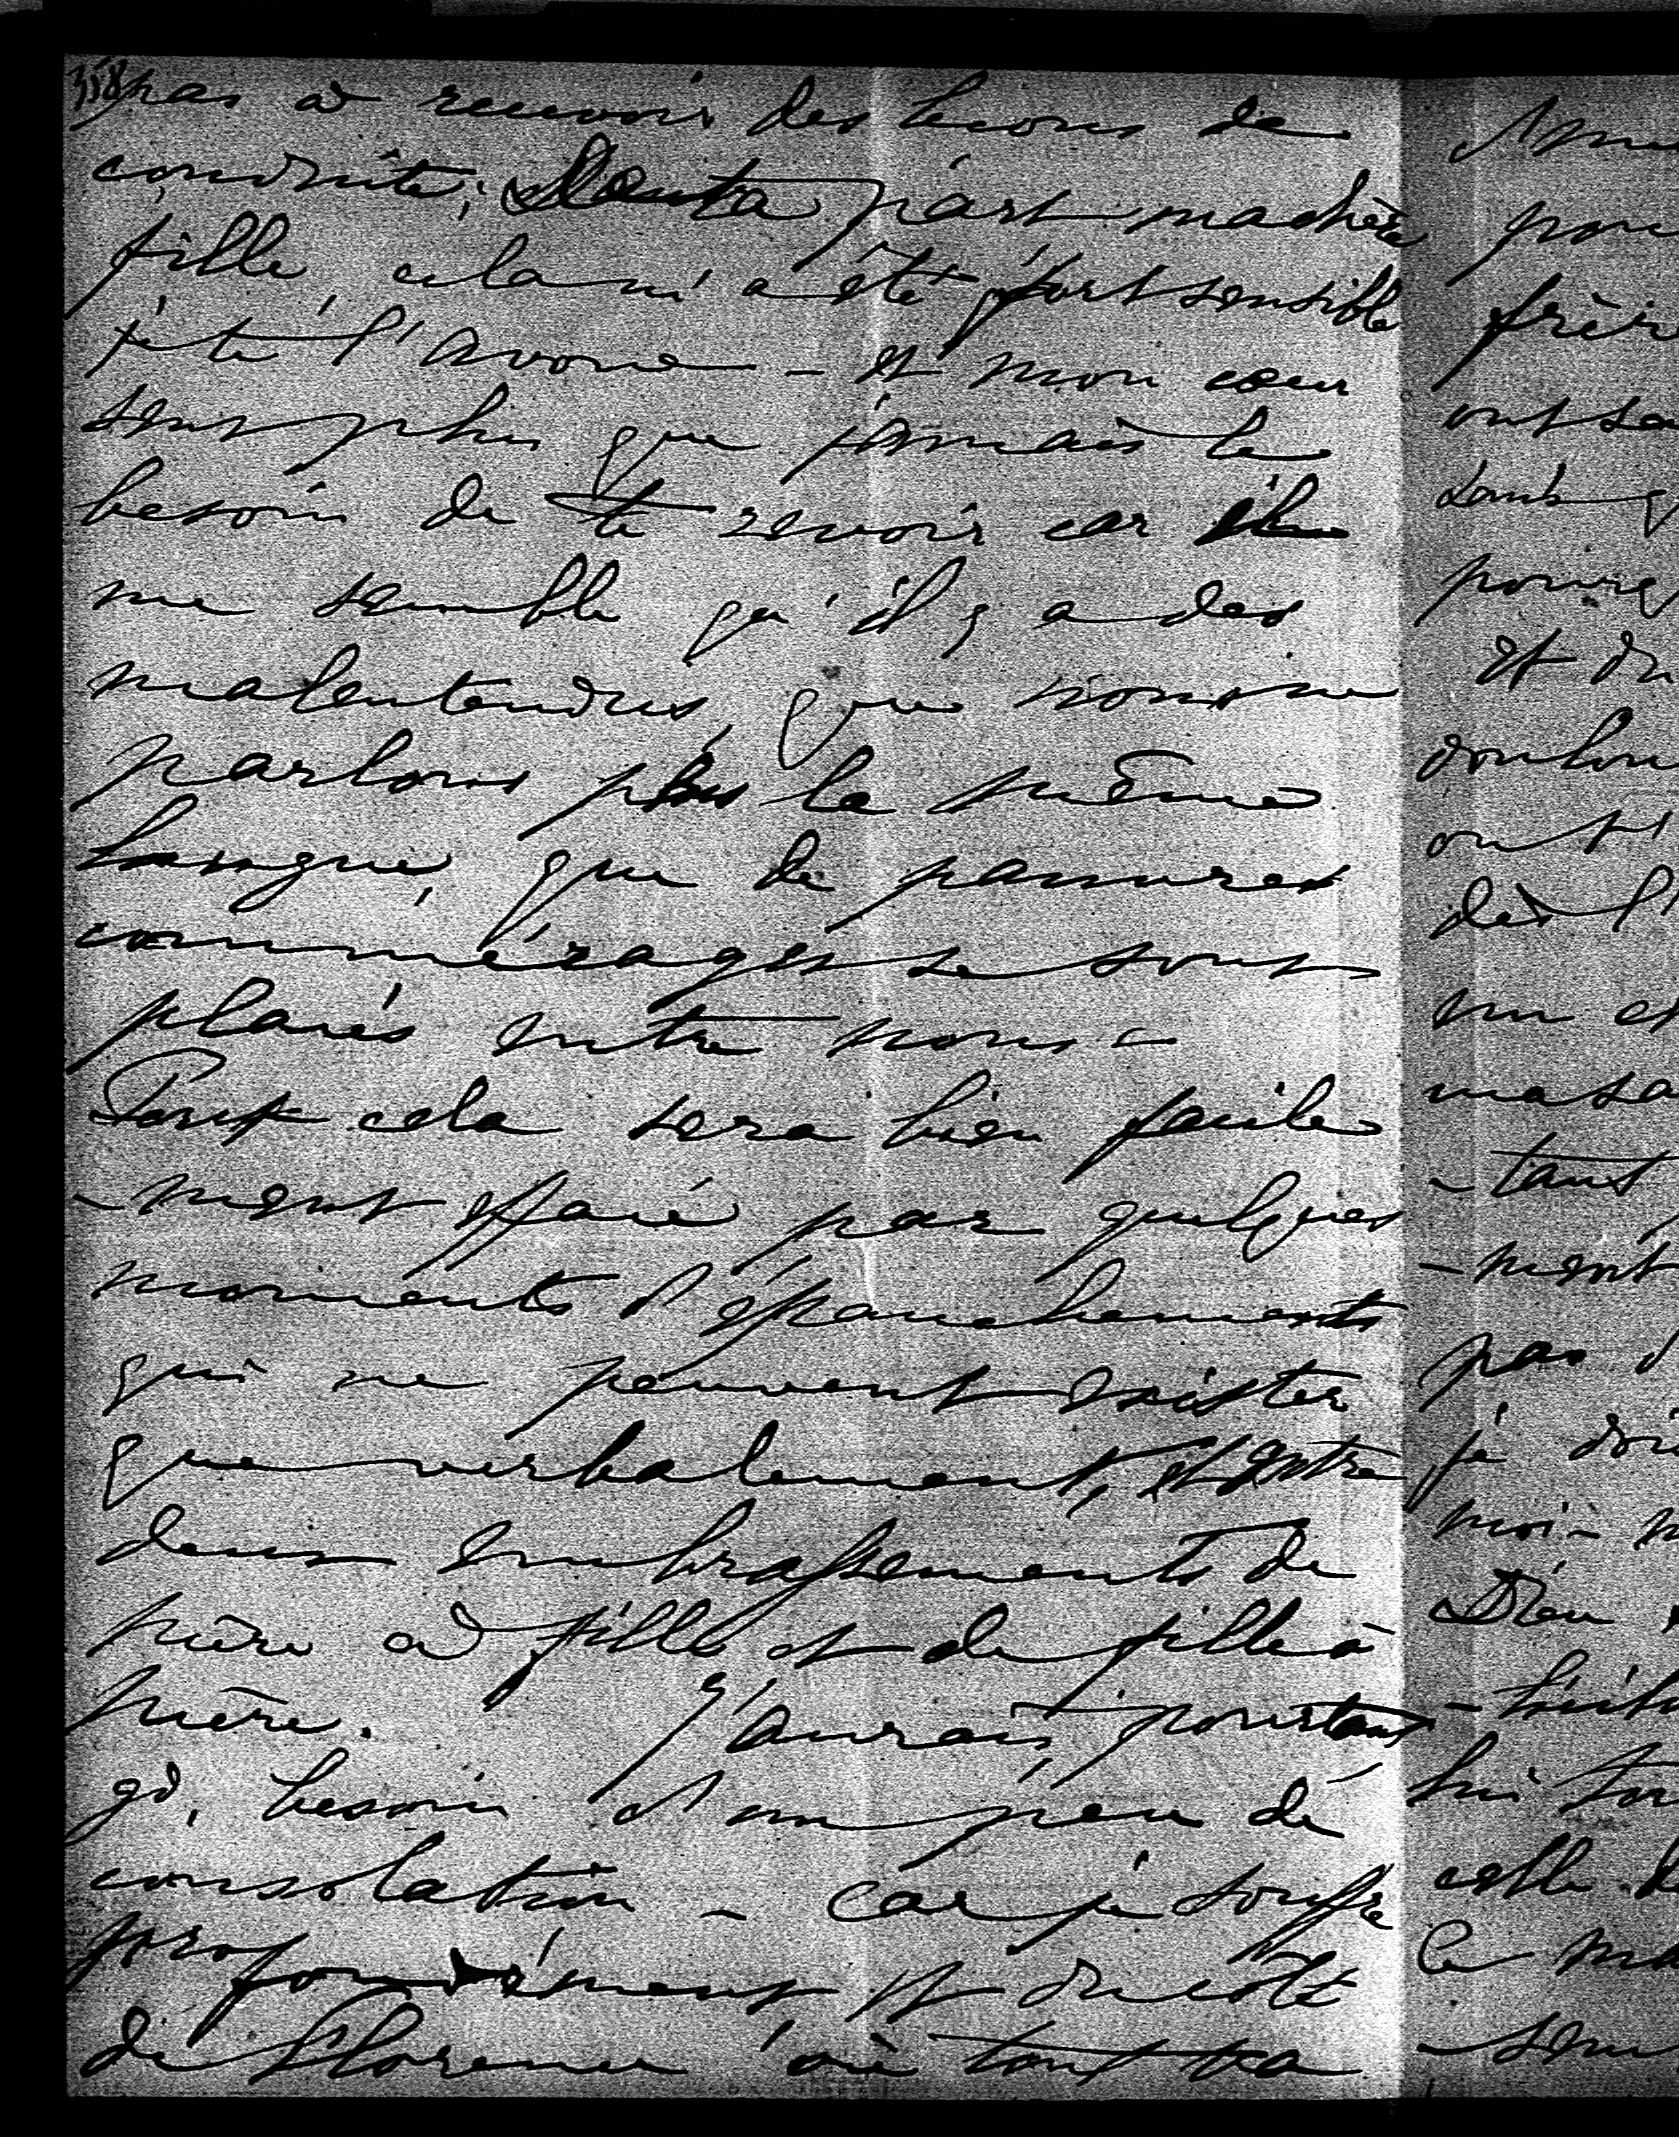 358
pas à recevoir des leçons de
conduite; de ta part ma chère
fille, cela m'a été fort sensible
je te l'avoue - et mon cœur
sent plus que jamais le
besoin de te revoir car il
me semble qu'il y a des
malentendus, que nous ne
parlons plus la même
langue, que de pauvres
commérages se sont
placés entre nous -
Tout cela sera bien facile
-ment effacé par quelques
moments d'épanchements
qui ne peuvent exister
que verbalement, et entre
deux embrassements de
mère à fille et de fille à
mère. J'aurais, pourtant
gd. besoin d'un peu de
consolation - car je souffre
profondément et du côté
de Florence où tout va
pou
frèr
ont sa
et du
dès l'
un
-tant
-ment
pas d
je doi
moi-m
Dieu,
lui tou
celle
le